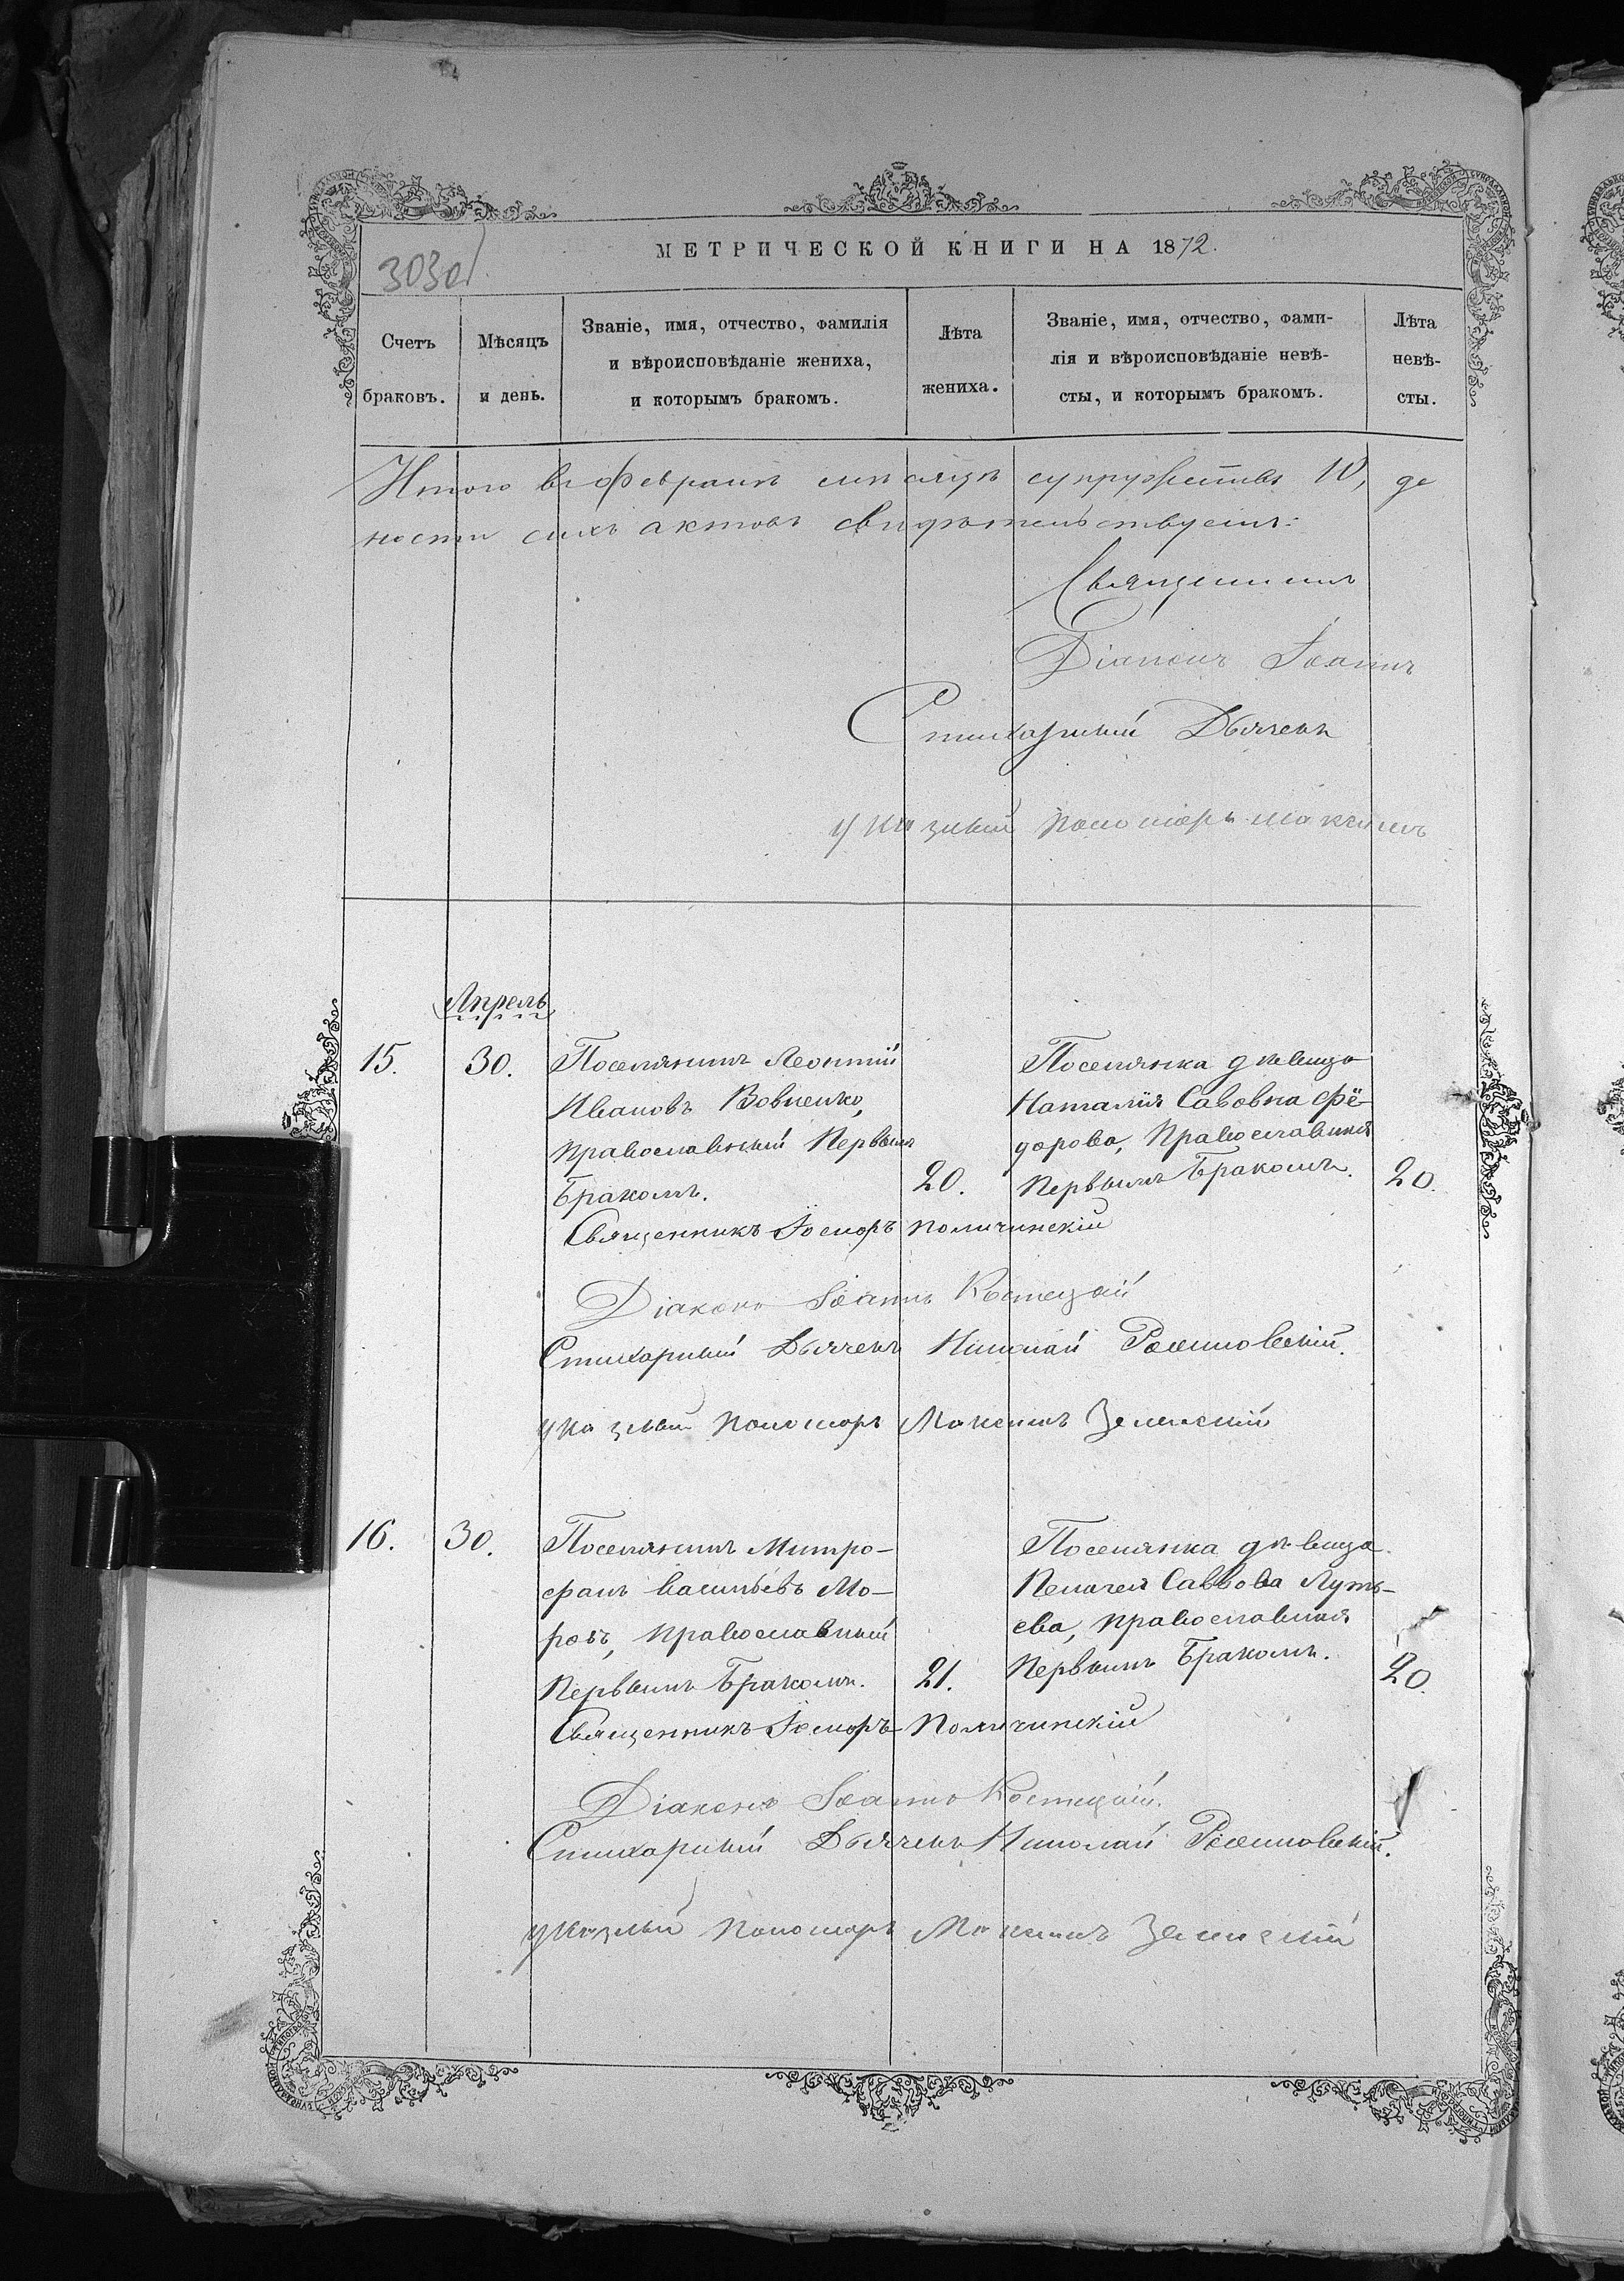 МЕТРИЧЕСКОЙ КНИГИ НА 1872.
Счетъ браковъ.
Мѣсяцъ и день.
Званіе, имя, отчество, фамилія
и вѣроисповѣданіе жениха,
и которымъ бракомъ.
Лѣта жениха.
Званіе, имя, отчество, фами-
лія и вѣроисповѣданіе невѣ-
сты, и которымъ бракомъ.
Лѣта невѣ-
сты.
Итого въ Февралѣ мѣсяцѣ супружествъ 10, до
ности сихъ актовъ свидѣтельствуемъ:
Священникъ
Діаконъ Іоаннъ
Стихарный Дьячекъ
указный пономарь Максимъ
Апрель
15. 30. Поселянинъ Леонтій
Ивановъ Вовченко,
православный Первымъ
Бракомъ. 20.
Поселянка дѣвица
Наталія Савовна Фё-
дорова, Православная
Первымъ Бракомъ. 20.
Священникъ
Діаконъ Іоаннъ Костецкій
Стихарный Дьячекъ Николай
указный пономарь Максимъ Зеленскій
16. 30. Поселянинъ Митро-
фанъ Васильевъ Мо-
розъ, православный
Первымъ Бракомъ. 21.
Поселянка дѣвица
Пелагея Саввова Луть-
ева, православная
Первымъ Бракомъ. 20.
Священникъ
Діаконъ Іоаннъ Костецкій.
Стихарный Дьячекъ Николай
указный пономарь Максимъ Зеленскій